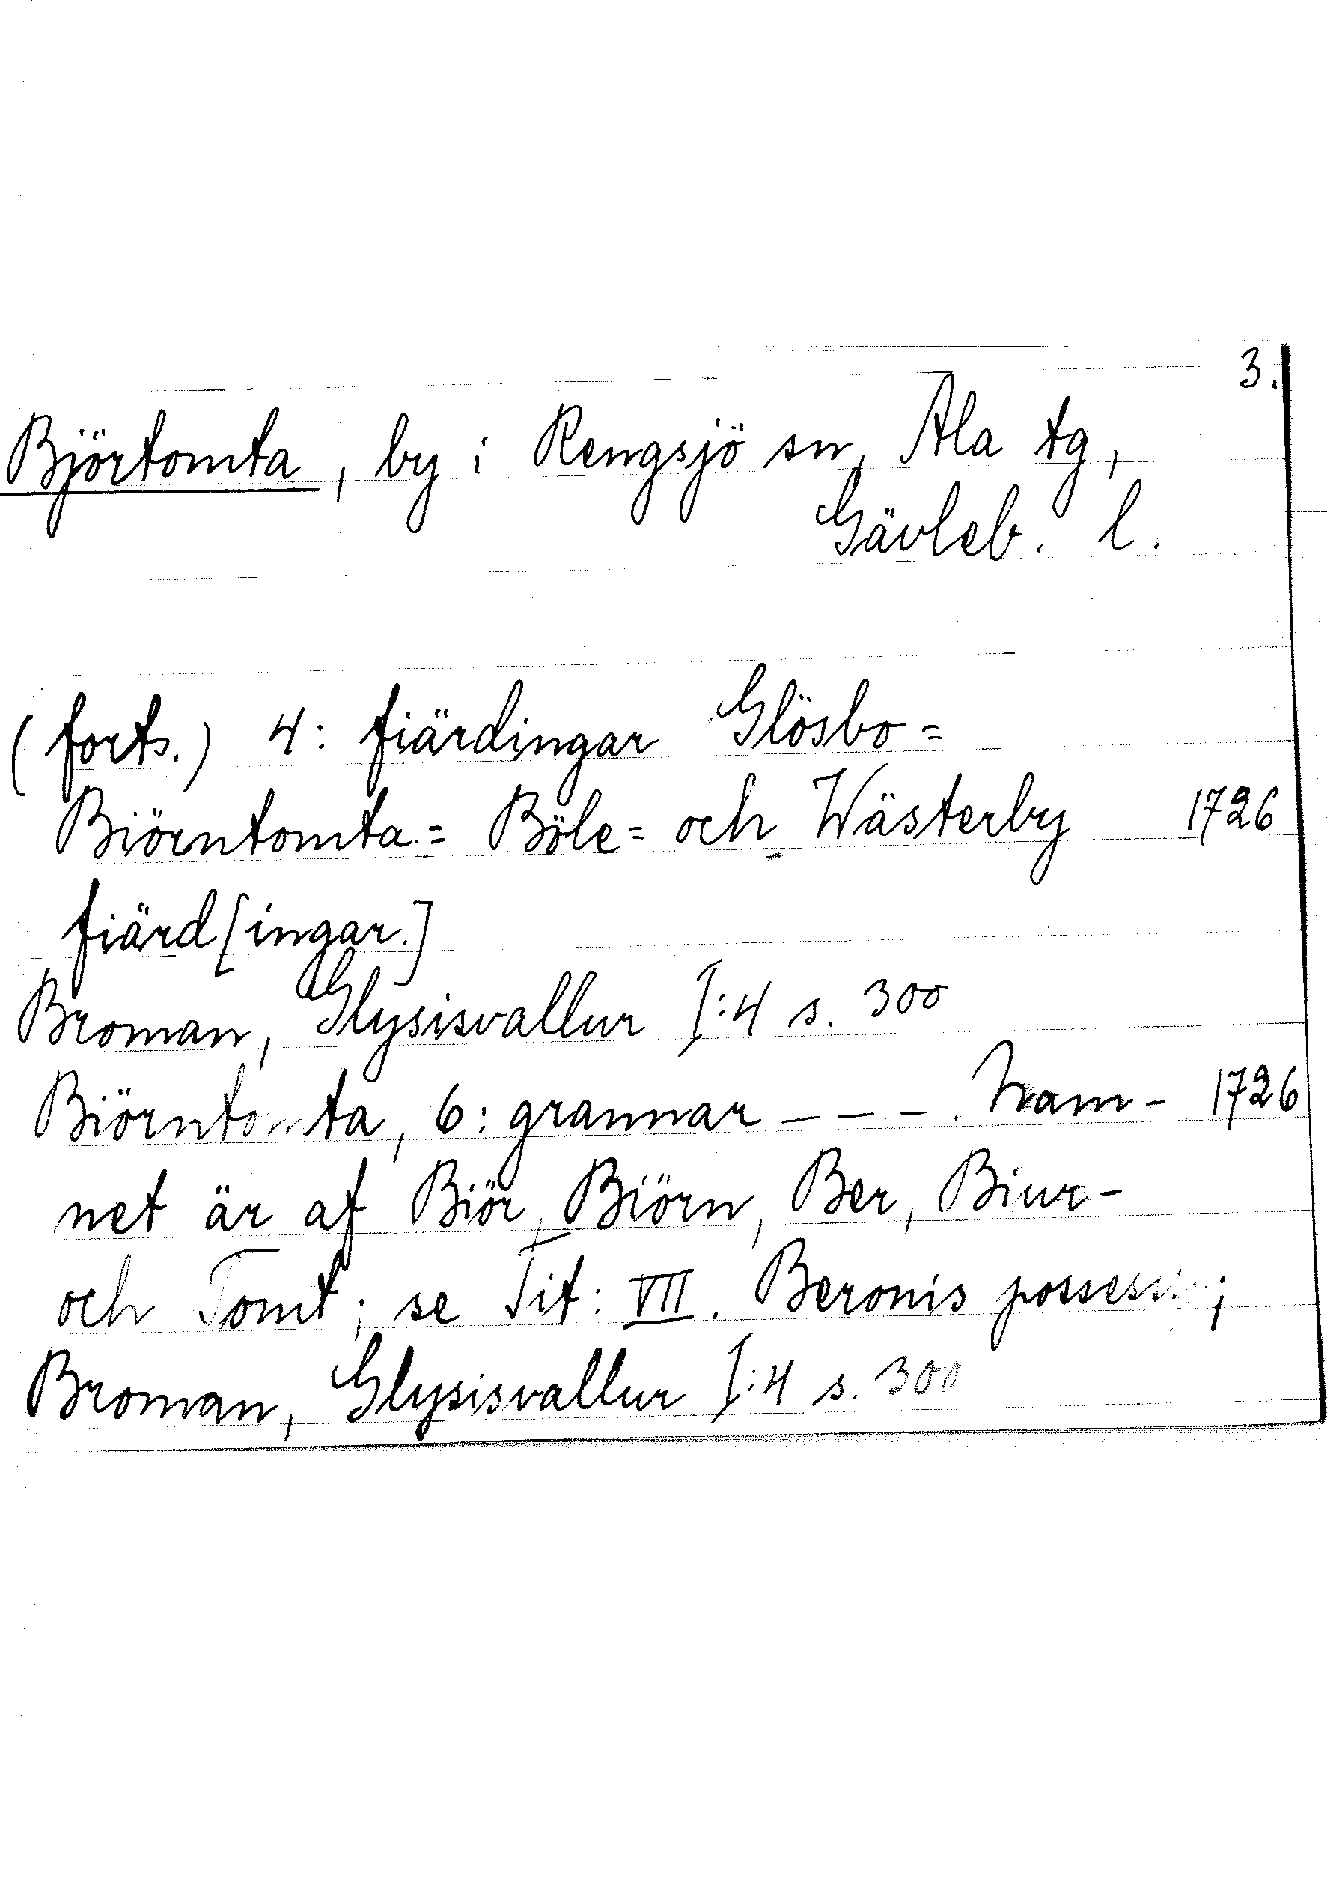 3.
Björtomta, by i Rengsjö sn, Ala tg,
Gävleb. l.
(forts.) 4: fiärdingar Glösbo=
Biörntomta= Böle= och Wästerby 1726
fiärd[ingar.]
Broman, Glysisvallur I:4 s. 300
Biörntomta, 6: grannar – – – . Nam- 1726
net är af Biör, Biörn, Ber, Biur-
och Tomt; se Tit: VII. Beronis
Broman, Glysisvallur I:4 s. 300